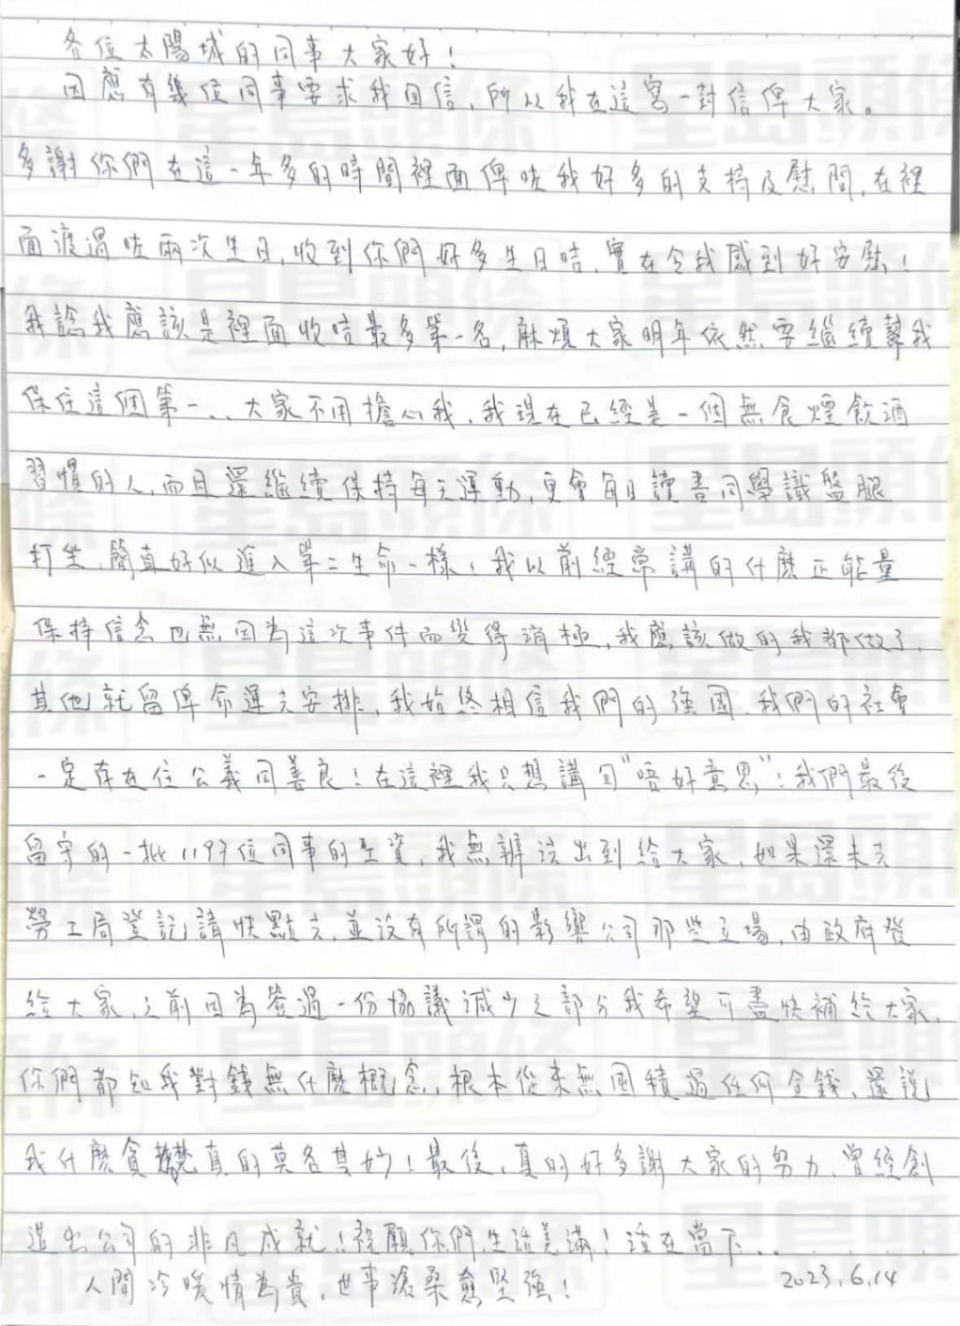 各位太陽城的同事大家好！
因應有幾位同事要求我回信，所以我在這寫一封信俾大家。
多謝你們在這一年多的時間裡面俾咗我好多的支持及慰問，在裡
面渡過咗兩次生日，收到你們好多生日咭，實在令我感到好安慰！
我諗我應該是裡面收咭最多第一名，麻煩大家明年依然要繼續幫我
保住這個第一．．大家不用擔心我，我現在已經是一個無食煙飲酒
習慣的人，而且還繼續保持每天運動，更會每日讀書同學識盤腿
打坐，簡直好似進入第二生命一樣，我以前經常講的什麼正能量
保持信念也無因為這次事件而變得消極，我應該做的我都做了，
其他就留俾命運去安排，我始終相信我們的強國，我們的社會
一定存在住公義同善良！在這裡我只想講句"唔好意思"！我們最後
留守的一批1197位同事的工資，我無辦法出到給大家，如果還未去
勞工局登記請快點去，並沒有所謂的影響公司那些立場，由政府發
給大家，之前因為簽過一份協議減少之部分我希望可盡快補給大家，
你們都知我對錢無什麼概念，根本從來無囤積過任何金錢，還說
我什麼貪婪真的莫名其妙！最後，真的好多謝大家的努力，曾經創
造出公司的非凡成就！祝願你們生活美滿！活在當下．．
人間冷暖情為貴，世事滄桑愈堅強！ 2023.6.14
星島頭條